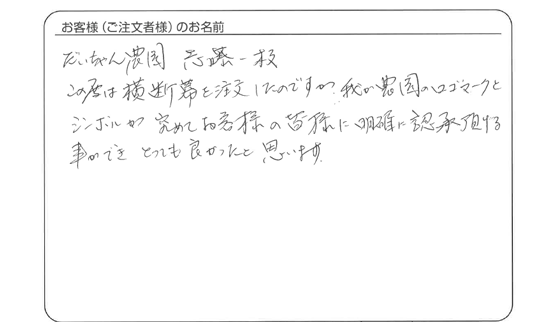 お客様（ご注文者様）のお名前
だいちゃん農園 斉藤一枝
この度は横断幕を注文したのですが、我が農園のロゴマークと
シンボルが 究めてお客様の皆様に明確に認承頂する
事ができ とっても良かったと思います。